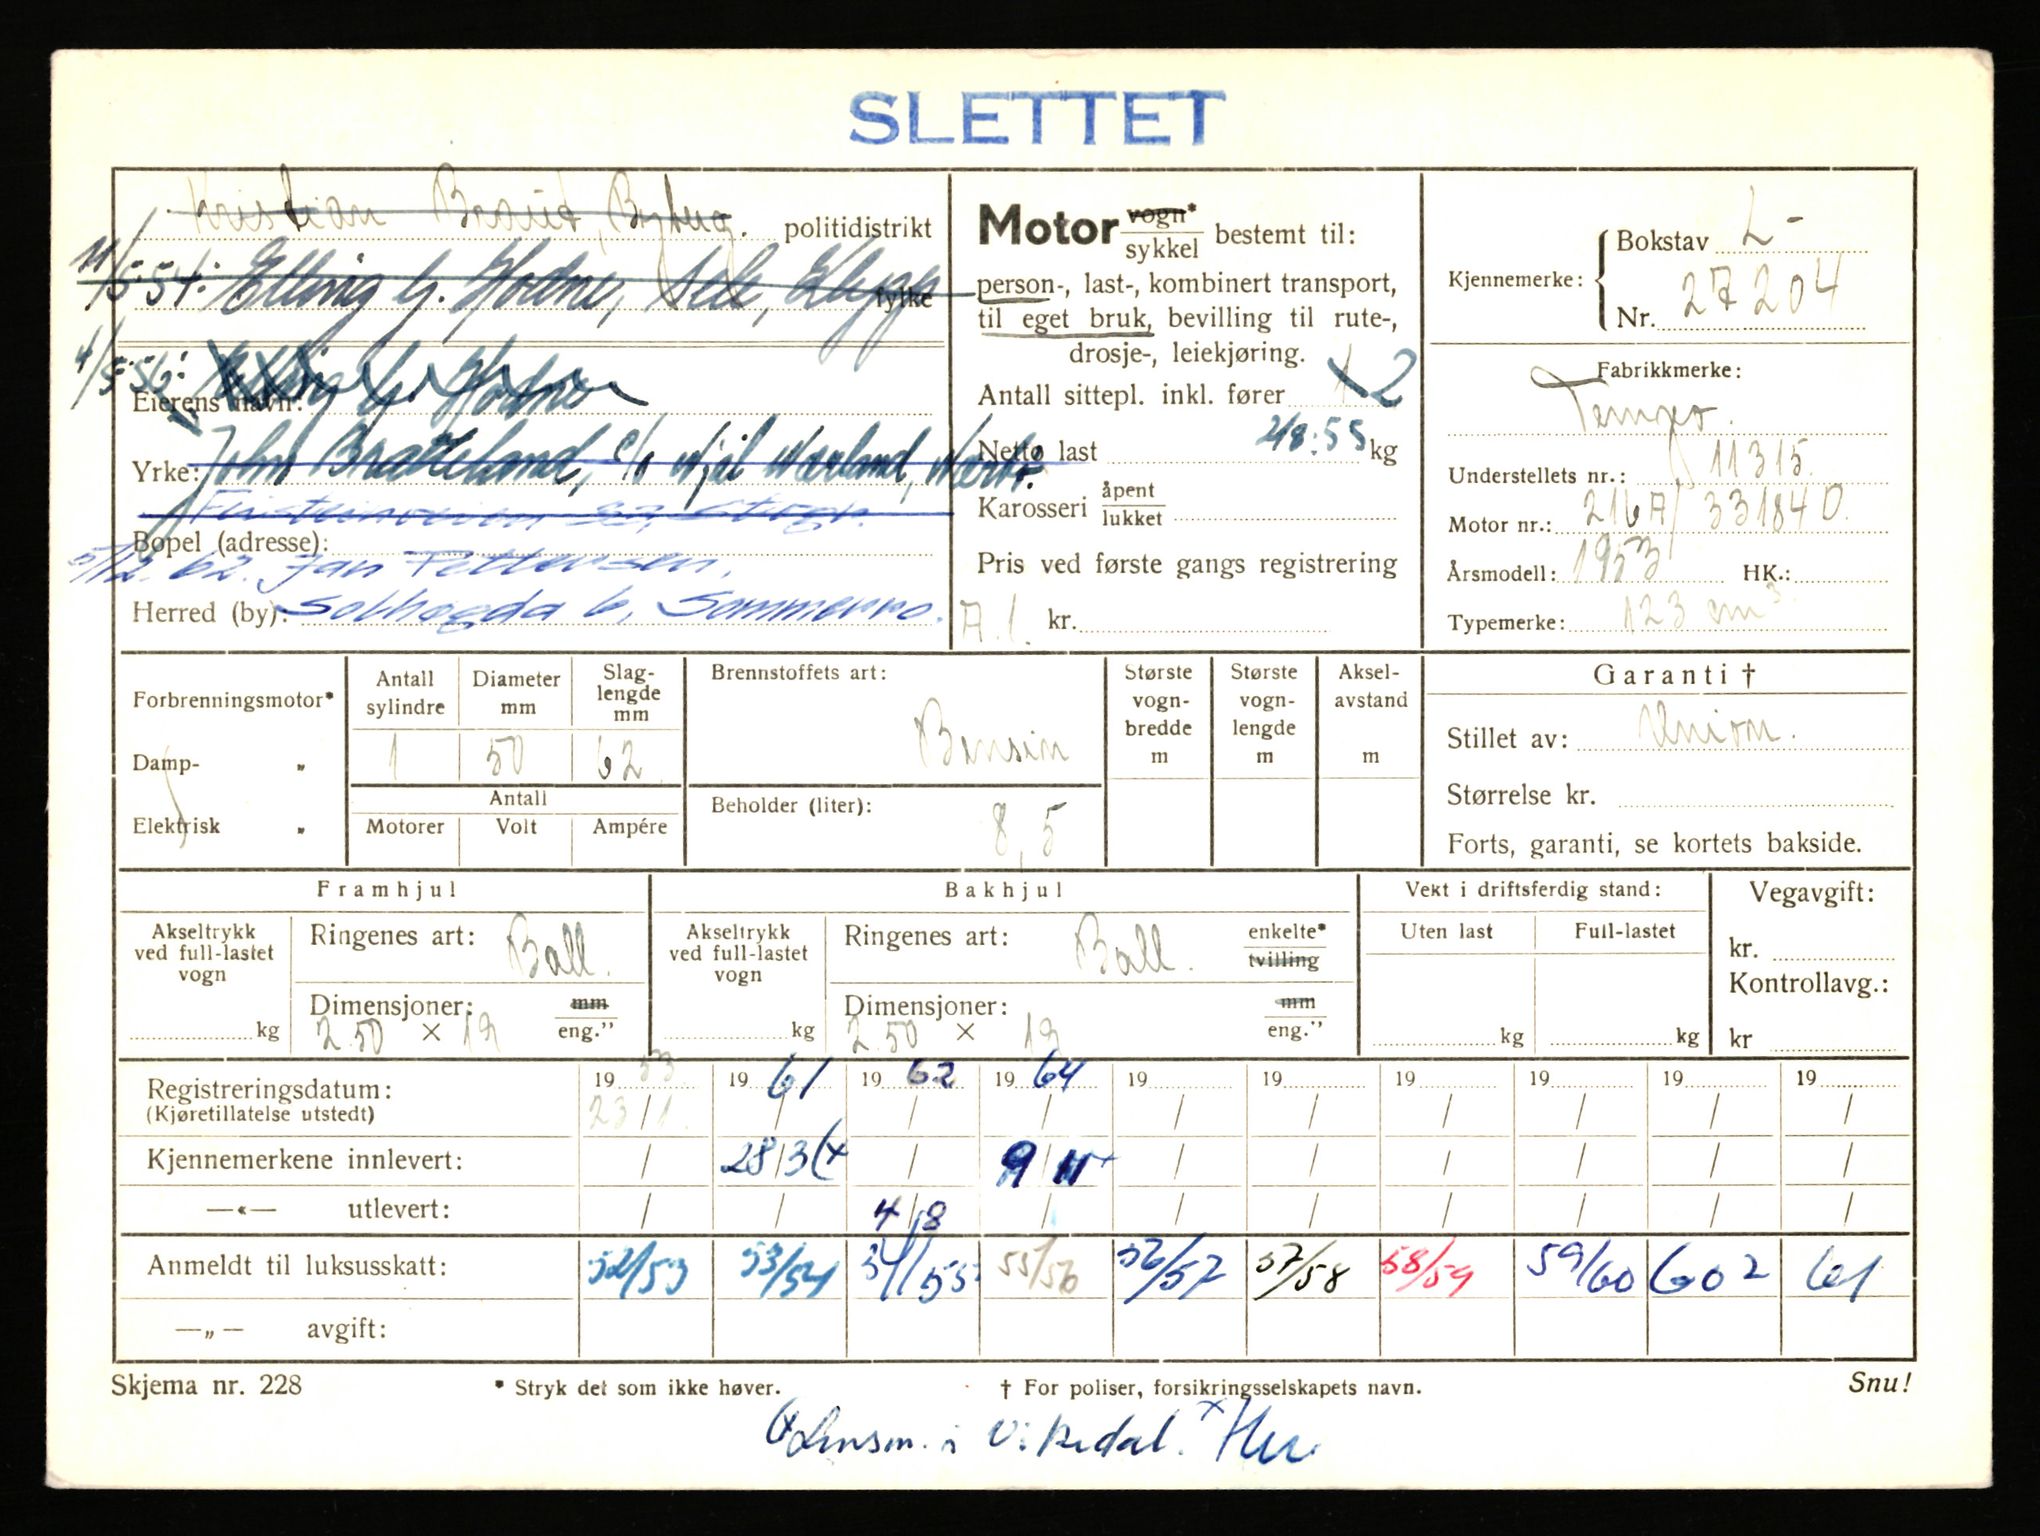 SLETTET
Kristian Braut, Byberg. politidistrikt
11/5-54: Elling G. Hodne, Sele, Klepp fylke
4/5-56: Elling G. Hodne
Eierens navn:
Yrke: John Bratteland, c/o Mjil Nærland, Nærbø.
Bopel (adresse):
5/12.62. Jan Pettersen,
Herred (by): Solhøgda 6, Sommerro.
Motor vogn* / sykkel bestemt til:
person-, last-, kombinert transport,
til eget bruk, bevilling til rute-,
drosje-, leiekjøring.
Antall sittepl. inkl. fører 1 2
Netto last 2/8:55 kg
Karosseri åpent / lukket
Pris ved første gangs registrering
A.l. kr.
Kjennemerke: Bokstav L-
Nr. 27204
Fabrikkmerke:
Tempo.
Understellets nr.: 11315.
Motor nr.: 216A/331840.
Årsmodell: 1953 HK.:
Typemerke: 123 cm³.
Forbrenningsmotor*
Damp- „
Elektrisk „
Antall sylindre 1
Diameter mm 50
Slag-lengde mm 62
Antall
Motorer Volt Ampére
Brennstoffets art:
Bensin
Beholder (liter):
8,5
Største vogn-bredde m
Største vogn-lengde m
Aksel-avstand m
Garanti †
Stillet av: Union.
Størrelse kr.
Forts, garanti, se kortets bakside.
Framhjul
Akseltrykk ved full-lastet vogn
kg
Ringenes art: Ball.
Dimensjoner: mm / eng."
2.50 × 19
Bakhjul
Akseltrykk ved full-lastet vogn
kg
Ringenes art: Ball. enkelte* / tvilling
Dimensjoner: mm / eng."
2.50 × 19
Vekt i driftsferdig stand:
Uten last Full-lastet
kg kg
Vegavgift:
kr.
Kontrollavg.:
kr
Registreringsdatum: 19 53 19 61 19 62 19 64 19 19 19 19 19 19
(Kjøretillatelse utstedt) 23/1. / / / / / / / / /
Kjennemerkene innlevert: / 28/3 (x / 9/11 + / / / / / /
—«— utlevert: / / 4/8 / / / / / / /
Anmeldt til luksusskatt: 52/53 53/54 54/55 55/56 56/57 57/58 58/59 59/60 602 61
—„— avgift:
Skjema nr. 228 * Stryk det som ikke høver. † For poliser, forsikringsselskapets navn. Snu!
Lensm. i Vikedal. x